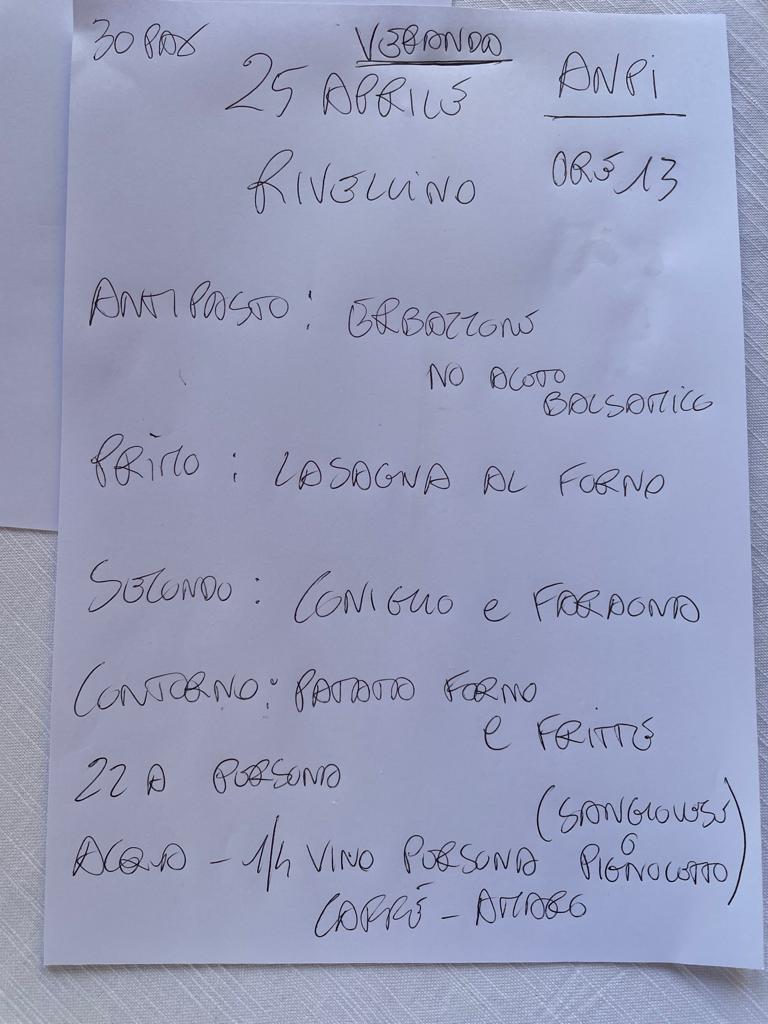 30 PAX
VERANDA
25 APRILE
ANPI
RIVELLINO
ORE 13
ANTIPASTO: ERBAZZONE
NO ACETO
BALSAMICO
PRIMO: LASAGNA AL FORNO
SECONDO: CONIGLIO e FARAONA
CONTORNO: PATATE FORNO
e FRITTE
22 A PERSONA
(SANGIOVESE
O
ACQUA - 1/4 VINO PERSONA PIGNOLETTO)
CAFFÈ - AMARO